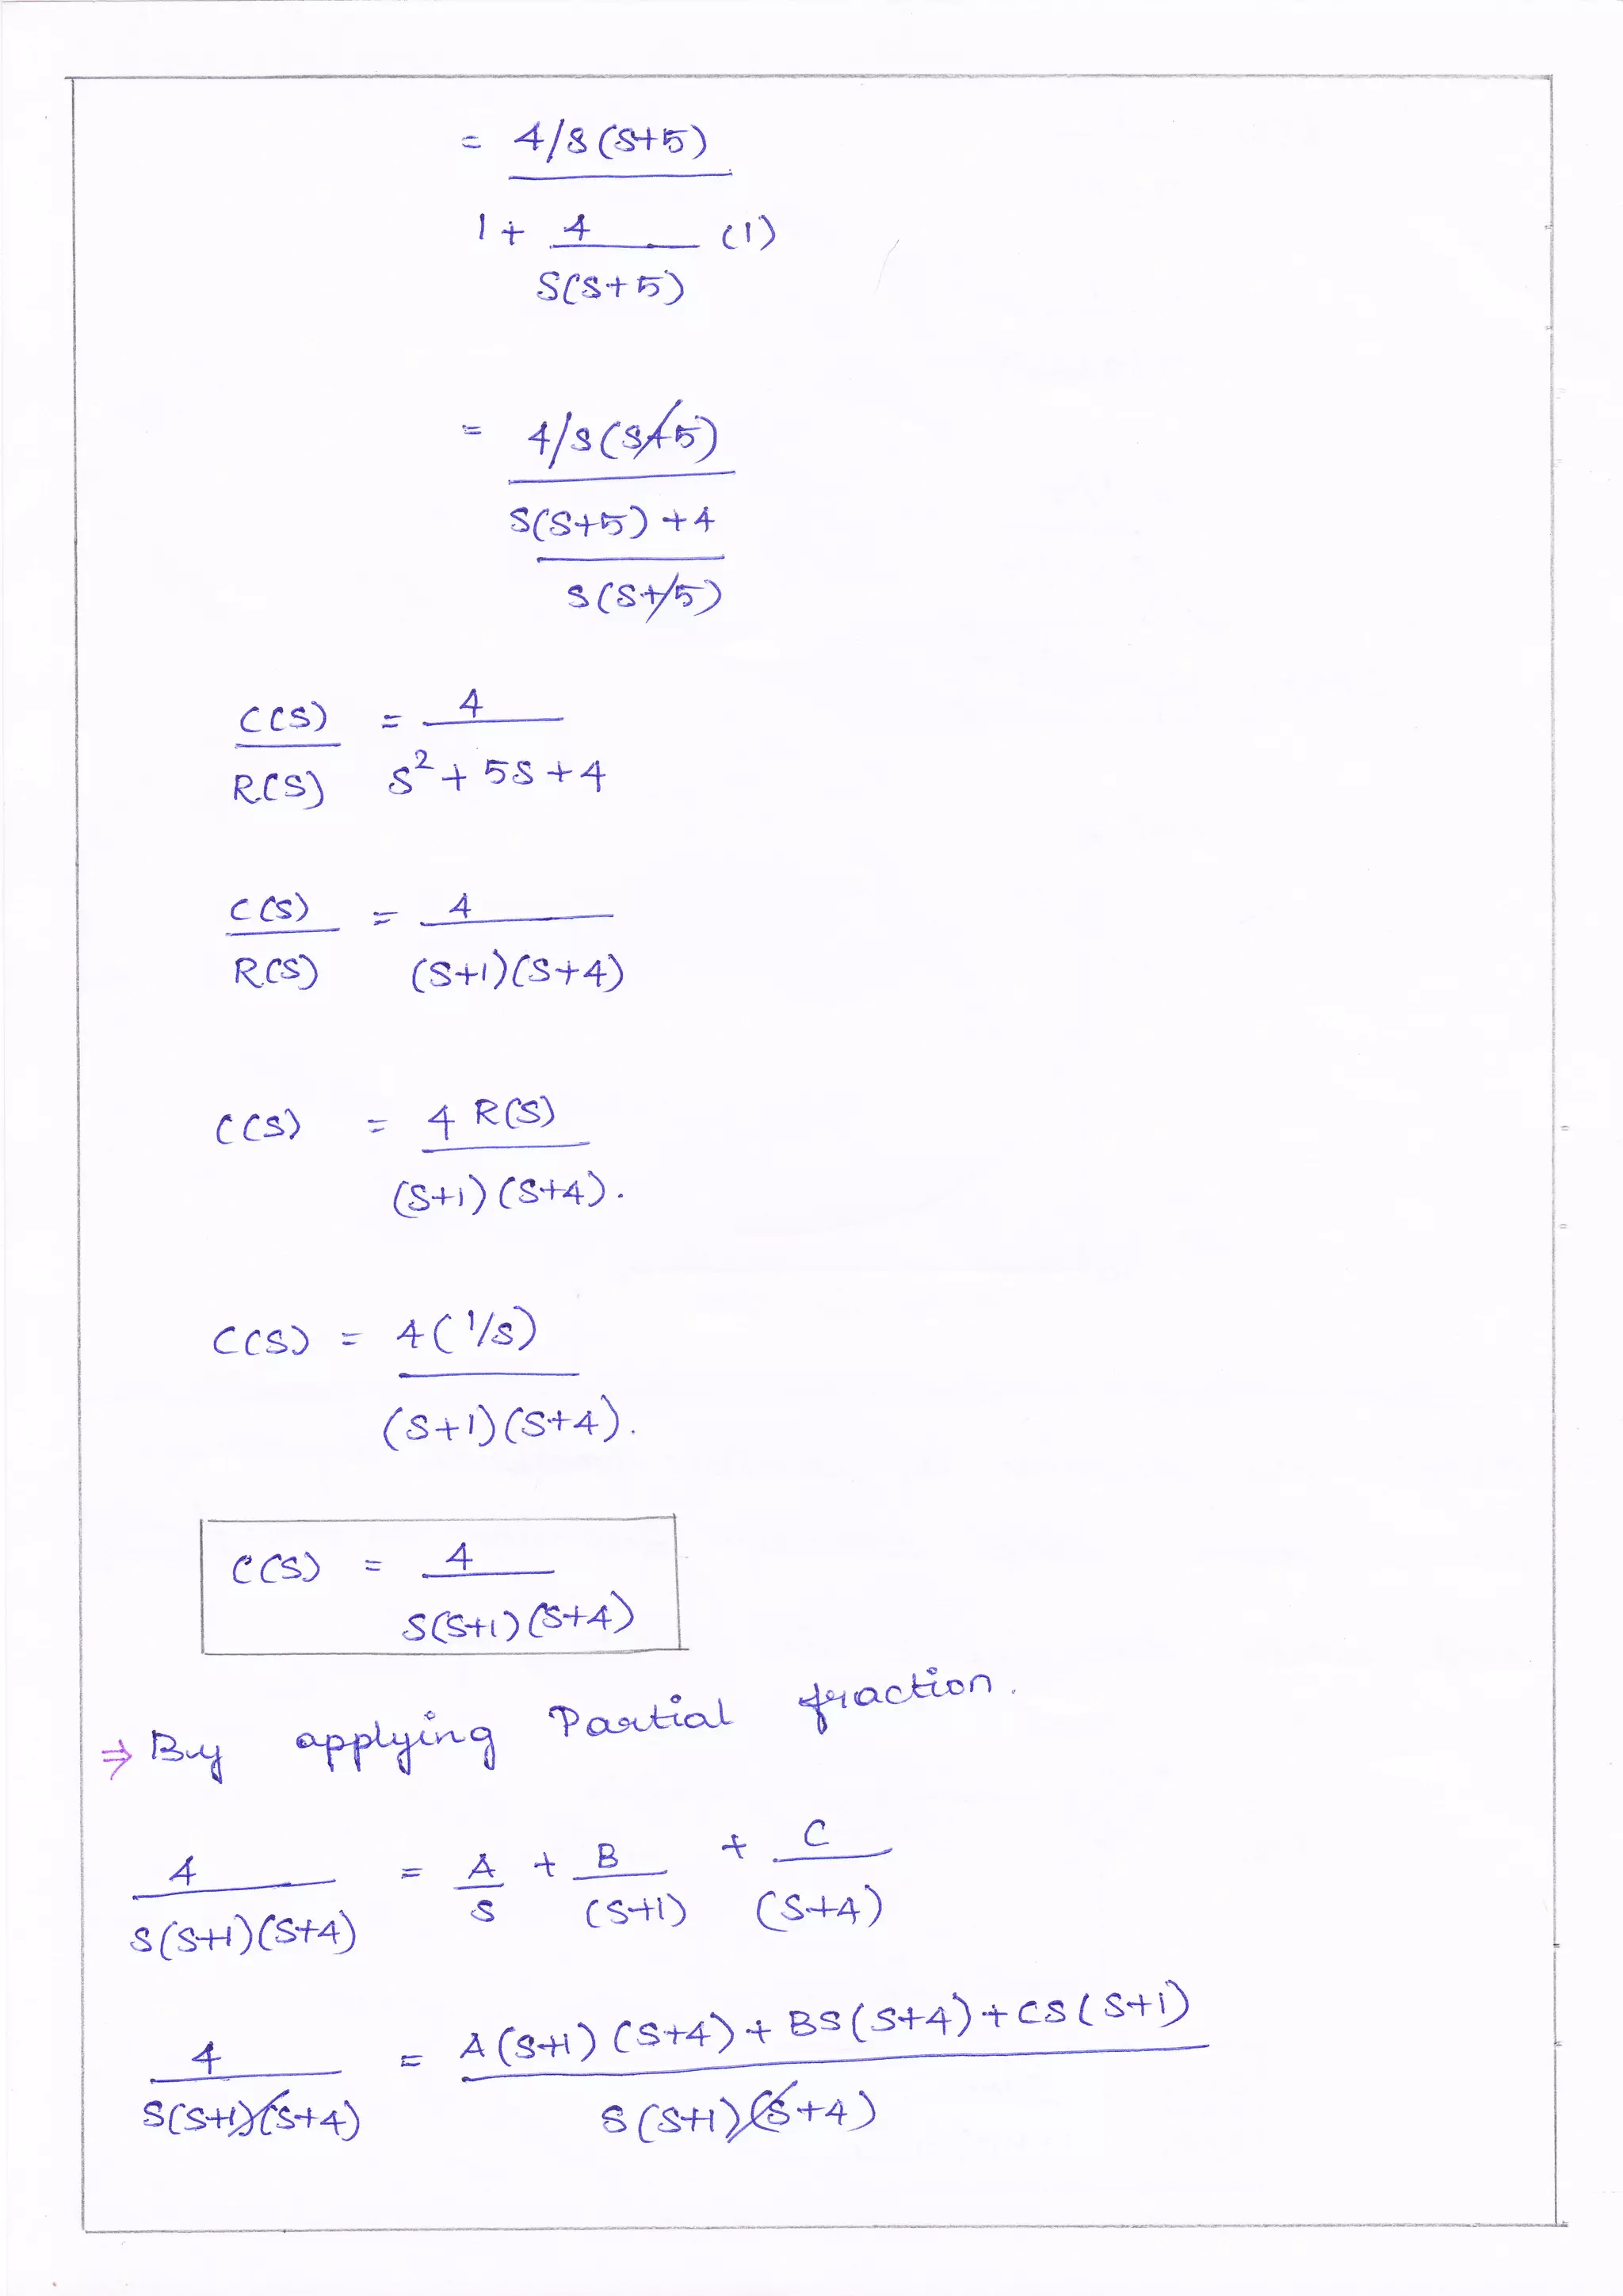 = 4/s(s+5)
1 + 4 (1)
s(s+5)
= 4/s(s+5)
s(s+5) + 4
s(s+5)
C(s) = 4
R(s) s² + 5s + 4
C(s) = 4
R(s) (s+1)(s+4)
C(s) = 4 R(s)
(s+1)(s+4).
C(s) = 4(1/s)
(s+1)(s+4).
C(s) = 4
s(s+1)(s+4)
⇒ By applying Partial fraction.
4 = A + B + C
s(s+1)(s+4) s (s+1) (s+4)
4 = A(s+1)(s+4) + Bs(s+4) + Cs(s+1)
s(s+1)(s+4) s(s+1)(s+4)